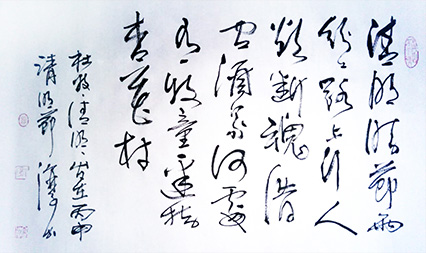 清明時節雨
紛紛路上行人
欲斷魂借
問酒家何處
有牧童遥指
杏花村
杜牧清明歲在丙申
清明節